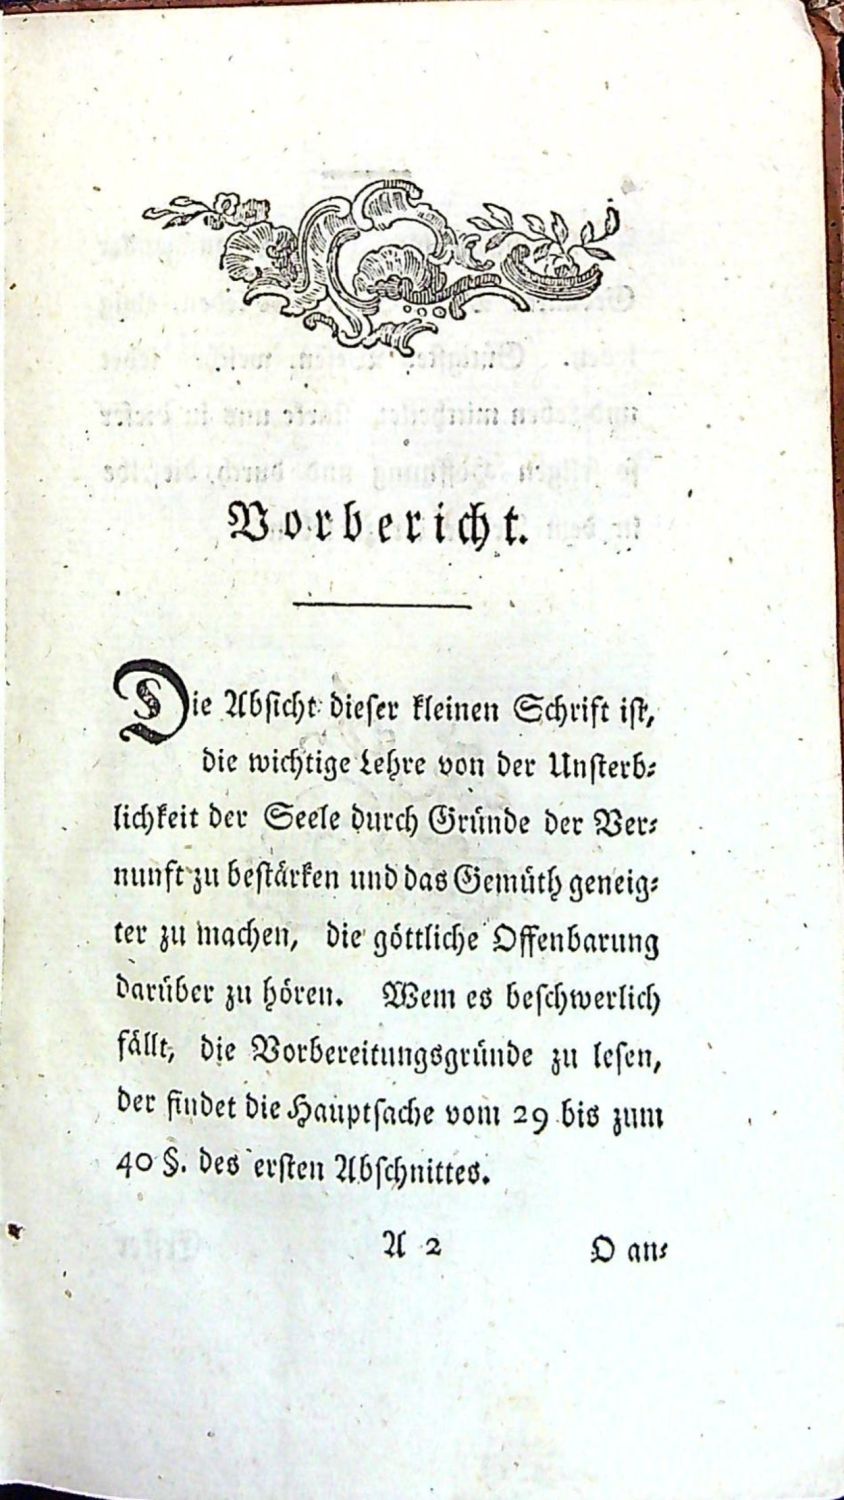 Vorbericht.
Die Absicht dieser kleinen Schrift ist,
die wichtige Lehre von der Unsterb⸗
lichkeit der Seele durch Gründe der Ver⸗
nunft zu bestärken und das Gemüth geneig⸗
ter zu machen, die göttliche Offenbarung
darüber zu hören. Wem es beschwerlich
fällt, die Vorbereitungsgründe zu lesen,
der findet die Hauptsache vom 29 bis zum
40 §. des ersten Abschnittes.
A 2 O an⸗